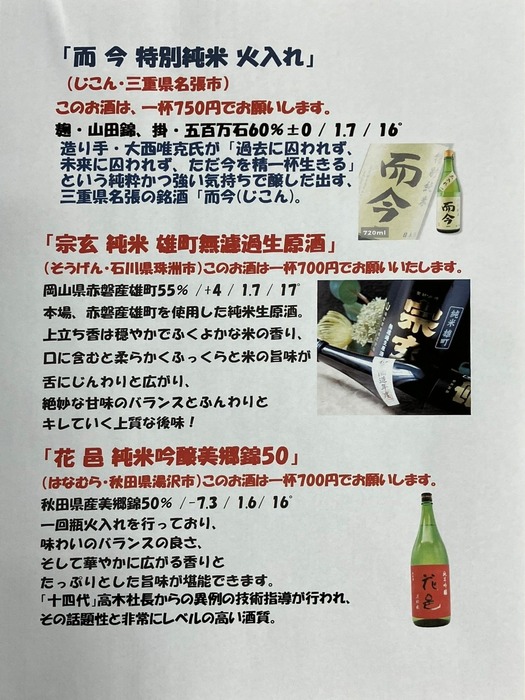 「而 今 特別純米 火入れ」
(じこん・三重県名張市)
このお酒は、一杯750円でお願いします。
麹・山田錦、掛・五百万石60%±0 / 1.7 / 16°
造り手・大西唯克氏が「過去に囚われず、
未来に囚われず、ただ今を精一杯生きる」
という純粋かつ強い気持ちで醸しだ出す、
三重県名張の銘酒「而今(じこん)。
而今
720ml
而今
「宗玄 純米 雄町無濾過生原酒」
(そうげん・石川県珠洲市)このお酒は一杯700円でお願いいたします。
岡山県赤磐産雄町55% /+4 / 1.7 / 17°
本場、赤磐産雄町を使用した純米生原酒。
上立ち香は穏やかでふくよかな米の香り、
口に含むと柔らかくふっくらと米の旨味が
舌にじんわりと広がり、
絶妙な甘味のバランスとふんわりと
キレていく上質な後味!
宗玄
純米雄町
「花 邑 純米吟醸美郷錦50」
(はなむら・秋田県湯沢市)このお酒は一杯700円でお願します。
秋田県産美郷錦50% /-7.3 / 1.6/ 16°
一回瓶火入れを行っており、
味わいのバランスの良さ、
そして華やかに広がる香りと
たっぷりとした旨味が堪能できます。
「十四代」高木社長からの異例の技術指導が行われ、
その話題性と非常にレベルの高い酒質。
純米吟醸
花邑